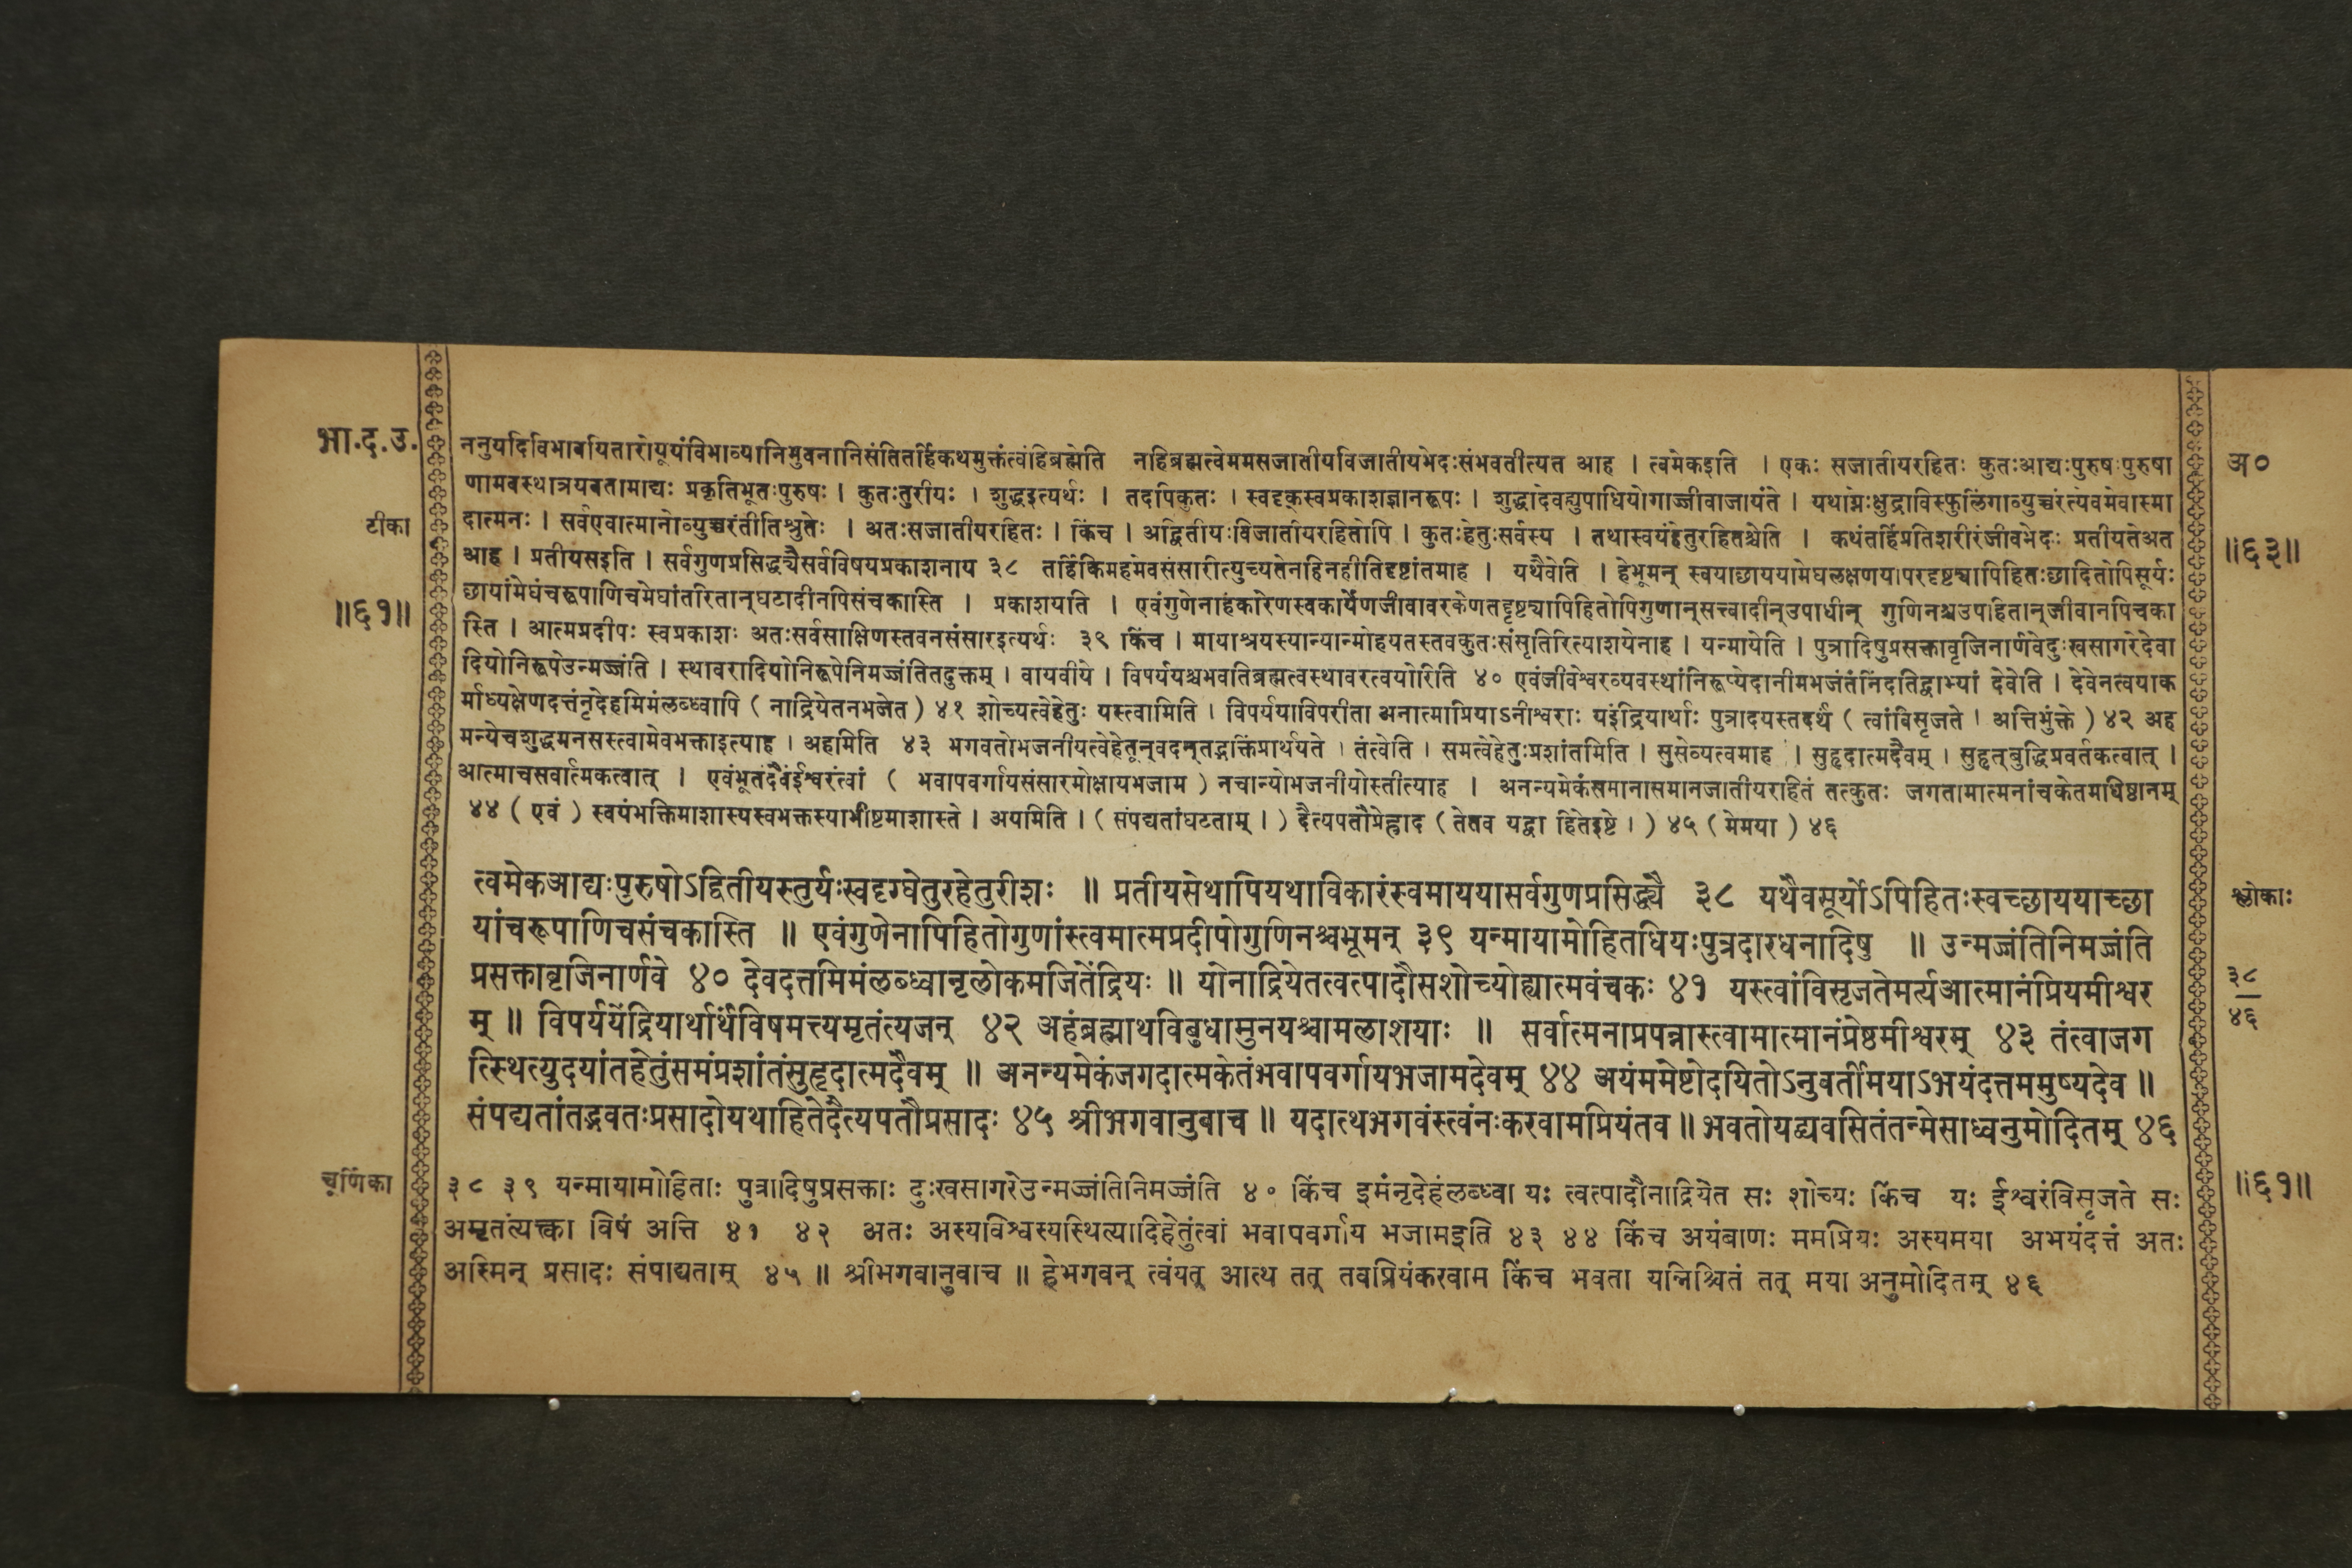 भा.द.उ.
टीका
॥६१॥
ननुयदिविभावयितारोयूयंविभाव्यानिभुवनानिसंतितर्हिकथमुक्तंत्वंहिब्रह्मेति नहिब्रह्मत्वेममसजातीयविजातीयभेदःसंभवतीत्यत आह । त्वमेकइति । एकः सजातीयरहितः कुतःआद्यःपुरुषःपुरुषा
णामवस्थात्रयवतामाद्यः प्रकृतिभूतःपुरुषः । कुतःतुरीयः । शुद्धइत्यर्थः । तदपिकुतः । स्वदृक्स्वप्रकाशज्ञानरूपः । शुद्धादेवह्युपाधियोगाज्जीवाजायंते । यथाग्नेःक्षुद्राविस्फुलिंगाव्युच्चरंत्येवमेवास्मा
दात्मनः । सर्वएवात्मानोव्युच्चरंतीतिश्रुतेः । अतःसजातीयरहितः । किंच । अद्वितीयःविजातीयरहितोपि । कुतःहेतुःसर्वस्य । तथास्वयंहेतुरहितश्चेति । कथंतर्हिप्रतिशरीरंजीवभेदः प्रतीयतेअत
आह । प्रतीयसइति । सर्वगुणप्रसिद्ध्यैसर्वविषयप्रकाशनाय ३८ तर्हिकिमहमेवसंसारीत्युच्यतेनहिनहीतिदृष्टांतमाह । यथैवेति । हेभूमन् स्वयाछाययामेघलक्षणयापरदृष्ट्यापिहितःछादितोपिसूर्यः
छायांमेघंचरूपाणिचमेघांतरितान्घटादीनपिसंचकास्ति । प्रकाशयति । एवंगुणेनाहंकारेणस्वकार्येणजीवावरकेणतद्दृष्ट्यापिहितोपिगुणान्सत्त्वादीन्उपाधीन् गुणिनश्चउपाहितान्जीवानपिचका
स्ति । आत्मप्रदीपः स्वप्रकाशः अतःसर्वसाक्षिणस्तवनसंसारइत्यर्थः ३९ किंच । मायाश्रयस्यान्यान्मोहयतस्तवकुतःसंसृतिरित्याशयेनाह । यन्मायेति । पुत्रादिषुप्रसक्तावृजिनार्णवेदुःखसागरेदेवा
दियोनिरूपेउन्मज्जंति । स्थावरादियोनिरूपेनिमज्जंतितदुक्तम् । वायवीये । विपर्ययश्चभवतिब्रह्मत्वस्थावरत्वयोरिति ४० एवंजीवेश्वरव्यवस्थांनिरूप्येदानीमभजंतंनिंदतिद्वाभ्यां देवेति । देवेनत्वयाक
र्माध्यक्षेणदत्तंनृदेहमिमंलब्ध्वापि ( नाद्रियेतनभजेत ) ४१ शोच्यत्वेहेतुः यस्त्वामिति । विपर्ययाविपरीता अनात्माप्रियाऽनीश्वराः यइंद्रियार्थाः पुत्रादयस्तदर्थं ( त्वांविसृजते । अत्तिभुंक्ते ) ४२ अह
मन्येचशुद्धमनसस्त्वामेवभक्ताइत्याह । अहमिति ४३ भगवतोभजनीयत्वेहेतून्वदन्तद्भक्तिंप्रार्थयते । तंत्वेति । समत्वेहेतुःप्रशांतमिति । सुसेव्यत्वमाह । सुहृदात्मदैवम् । सुहृत्बुद्धिप्रवर्तकत्वात् ।
आत्माचसर्वात्मकत्वात् । एवंभूतंदैवंईश्वरंत्वां ( भवापवर्गायसंसारमोक्षायभजाम ) नचान्योभजनीयोस्तीत्याह । अनन्यमेकंसमानासमानजातीयराहितं तत्कुतः जगतामात्मनांचकेतमधिष्ठानम्
४४ ( एवं ) स्वयंभक्तिमाशास्यस्वभक्तस्याभीष्टमाशास्ते । अयमिति । ( संपद्यतांघटताम् । ) दैत्यपतौप्रेह्लाद ( तेतव यद्वा हितेइष्टे । ) ४५ ( मेमया ) ४६
त्वमेकआद्यःपुरुषोऽद्वितीयस्तुर्यःस्वदृग्घेतुरहेतुरीशः ॥ प्रतीयसेथापियथाविकारंस्वमाययासर्वगुणप्रसिद्ध्यै ३८ यथैवसूर्योऽपिहितःस्वच्छाययाच्छा
यांचरूपाणिचसंचकास्ति ॥ एवंगुणेनापिहितोगुणांस्त्वमात्मप्रदीपोगुणिनश्चभूमन् ३९ यन्मायामोहितधियःपुत्रदारधनादिषु ॥ उन्मज्जंतिनिमज्जंति
प्रसक्तावृजिनार्णवे ४० देवदत्तमिमंलब्ध्वानृलोकमजितेंद्रियः ॥ योनाद्रियेतत्वत्पादौसशोच्योह्यात्मवंचकः ४१ यस्त्वांविसृजतेमर्त्यआत्मानंप्रियमीश्वर
म् ॥ विपर्ययेंद्रियार्थार्थंविषमत्त्यमृतंत्यजन् ४२ अहंब्रह्माथविबुधामुनयश्चामलाशयाः ॥ सर्वात्मनाप्रपन्नास्त्वामात्मानंप्रेष्ठमीश्वरम् ४३ तंत्वाजग
त्स्थित्युदयांतहेतुंसमंप्रशांतंसुहृदात्मदैवम् ॥ अनन्यमेकंजगदात्मकेतंभवापवर्गायभजामदेवम् ४४ अयंममेष्टोदयितोऽनुवर्तीमयाऽभयंदत्तममुष्यदेव ॥
संपद्यतांतद्भवतःप्रसादोयथाहितेदैत्यपतौप्रसादः ४५ श्रीभगवानुवाच ॥ यदात्थभगवंस्त्वंनःकरवामप्रियंतव ॥ भवतोयद्व्यवसितंतन्मेसाध्वनुमोदितम् ४६
चूर्णिका
३८ ३९ यन्मायामोहिताः पुत्रादिषुप्रसक्ताः दुःखसागरेउन्मज्जंतिनिमज्जंति ४० किंच इमंनृदेहंलब्ध्वा यः त्वत्पादौनाद्रियेत सः शोच्यः किंच यः ईश्वरंविसृजते सः
अमृतंत्यक्त्वा विषं अत्ति ४१ ४२ अतः अस्यविश्वस्यस्थित्यादिहेतुंत्वां भवापवर्गाय भजामइति ४३ ४४ किंच अयंबाणः ममप्रियः अस्यमया अभयंदत्तं अतः
अस्मिन् प्रसादः संपाद्यताम् ४५ ॥ श्रीभगवानुवाच ॥ हेभगवन् त्वंयत् आत्थ तत् तवप्रियंकरवाम किंच भवता यन्निश्चितं तत् मया अनुमोदितम् ४६
अ०
॥६३॥
श्लोकाः
३८
४६
॥६१॥